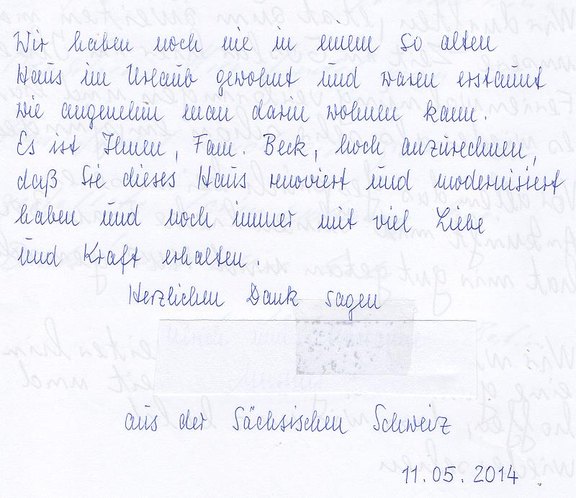 Wir haben noch nie in einem so alten
Haus im Urlaub gewohnt und waren erstaunt
wie angenehm man darin wohnen kann.
Es ist Ihnen, Fam. Beck, hoch anzurechnen,
daß Sie dieses Haus renoviert und modernisiert
haben und noch immer mit viel Liebe
und Kraft erhalten.
Herzlichen Dank sagen
aus der Sächsischen Schweiz
11.05.2014